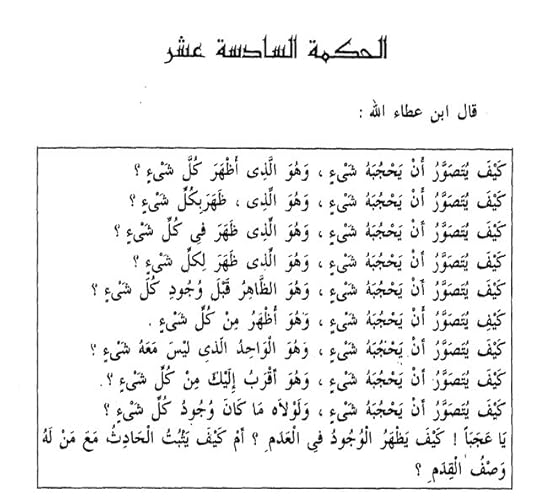 الحكمة السادسة عشر
قال ابن عطاء الله :
كَيْفَ يُتَصَوَّرُ أَنْ يَحْجُبَهُ شَىْءٍ ، وَهُوَ الَّذِى أَظْهَرَ كُلَّ شَىْءٍ ؟
كَيْفَ يُتَصَوَّرُ أَنْ يَحْجُبَهُ شَىْءٍ ، وَهُوَ الَّذِى ، ظَهَرَبِكُلِّ شَىْءٍ ؟
كَيْفَ يُتَصَوَّرُ أَنْ يَحْجُبَهُ شَىْءٍ ، وَهُوَ الَّذِى ظَهَرَ فِى كُلِّ شَىْءٍ ؟
كَيْفَ يُتَصَوَّرُ أَنْ يَحْجُبَهُ شَىْءٍ ، وَهُوَ الَّذِى ظَهَرَ لِكلِّ شَىْءٍ ؟
كَيْفَ يُتَصَوَّرُ أَنْ يَحْجُبَهُ شَىْءٍ ، وَهُوَ الظَّاهِرُ قَبْلَ وُجُودِ كُلِّ شَىْءٍ ؟
كَيْفَ يُتَصَوَّرُ أَنْ يَحْجُبَهُ شَىْءٍ ، وَهُوَ أَظْهَرُ مِنْ كُلِّ شَىْءٍ .
كَيْفَ يُتَصَوَّرُ أَنْ يَحْجُبَهُ شَىْءٍ ، وَهُوَ الْوَاحِدُ الَّذِى لَيْسَ مَعَهُ شَىْءٍ ؟
كَيْفَ يُتَصَوَّرُ أَنْ يَحْجُبَهُ شَىْءٍ ، وَهُوَ أَقْرَبُ إِلَيْكَ مِنْ كُلِّ شَىْءٍ ؟
كَيْفَ يُتَصَوَّرُ أَنْ يَحْجُبَهُ شَىْءٍ ، وَلَوْلاَه مَا كَانَ وُجُودُ كُلِّ شَىْءٍ ؟
يَا عَجَبَاً ! كَيْفَ يَظْهَرُ الْوُجُودُ فِى الْعَدَمِ ؟ أَمْ كَيْفَ يَثْبُتُ الْحَادِثُ مَعَ مَنْ لَهُ
وَصْفُ الْقِدَمِ ؟